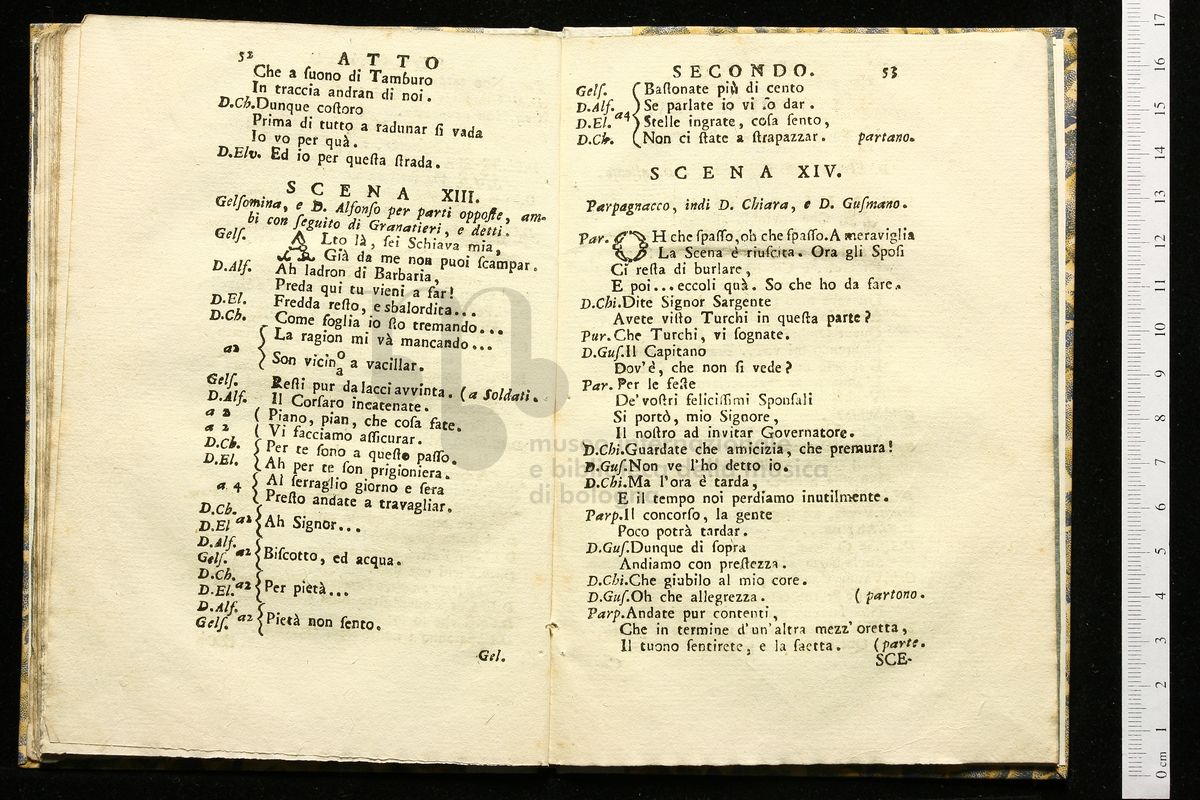 52 ATTO
Che a ſuono di Tamburo
In traccia andran di noi.
D.Ch. Dunque coſtoro
Prima di tutto a radunar ſi vada
Io vo per quà.
D.Elv. Ed io per queſta ſtrada.
SCENA XIII.
Gelſomina, e D. Alfonſo per parti oppoſte, am-
bi con ſeguito di Granatieri, e detti.
Gelſ. ALto là, ſei Schiava mia,
Già da me non puoi ſcampar.
D.Alf. Ah ladron di Barbaria,
Preda qui tu vieni a far!
D.El. Fredda reſto, e sbalordita...
D.Ch. Come foglia io ſto tremando...
a2 La ragion mi và mancando...
Son vicin o/a a vacillar.
Gelſ. Reſti pur da lacci avvinta. (a Soldati.
D.Alf. Il Corſaro incatenate.
a 2 ( Piano, pian, che coſa fate.
a 2 ( Vi facciamo aſſicurar.
D.Ch. ( Per te ſono a queſto paſſo.
D.El. ( Ah per te ſon prigioniera.
a 4 Al ſerraglio giorno e ſera
Preſto andate a travagliar.
D.Ch.
D.El a2 Ah Signor...
D.Alf.
Gelſ. a2 Biſcotto, ed acqua.
D.Ch.
D.El. a2 Per pietà...
D.Alf.
Gelſ. a2 Pietà non ſento.
Gel.
SECONDO. 53
Gelſ. Baſtonate più di cento
D.Alf. Se parlate io vi ſo dar.
D.El. a4 Stelle ingrate, coſa ſento,
D.Ch. Non ci ſtate a ſtrapazzar. partano.
SCENA XIV.
Parpagnacco, indi D. Chiara, e D. Guſmano.
Par. OH che ſpaſſo, oh che ſpaſſo. A meraviglia
La Scena è riuſcita. Ora gli Spoſi
Ci reſta di burlare,
E poi... eccoli quà. So che ho da fare.
D.Chi. Dite Signor Sargente
Avete viſto Turchi in queſta parte?
Pur. Che Turchi, vi ſognate.
D.Guſ. Il Capitano
Dov'è, che non ſi vede?
Par. Per le feſte
De' voſtri feliciſſimi Sponſali
Si portò, mio Signore,
Il noſtro ad invitar Governatore.
D.Chi. Guardate che amicizia, che premura!
D.Guſ. Non ve l'ho detto io.
D.Chi. Ma l'ora è tarda,
E il tempo noi perdiamo inutilmente.
Parp. Il concorſo, la gente
Poco potrà tardar.
D.Guſ. Dunque di ſopra
Andiamo con preſtezza.
D.Chi. Che giubilo al mio core.
D.Guſ. Oh che allegrezza. (partono.
Parp. Andate pur contenti,
Che in termine d'un'altra mezz'oretta,
Il tuono ſentirete, e la ſaetta. (parte.
SCE-
museo internazionale
e biblioteca della musica
di bologna
17
16
15
14
13
12
11
10
9
8
7
6
5
4
3
2
1
0 cm